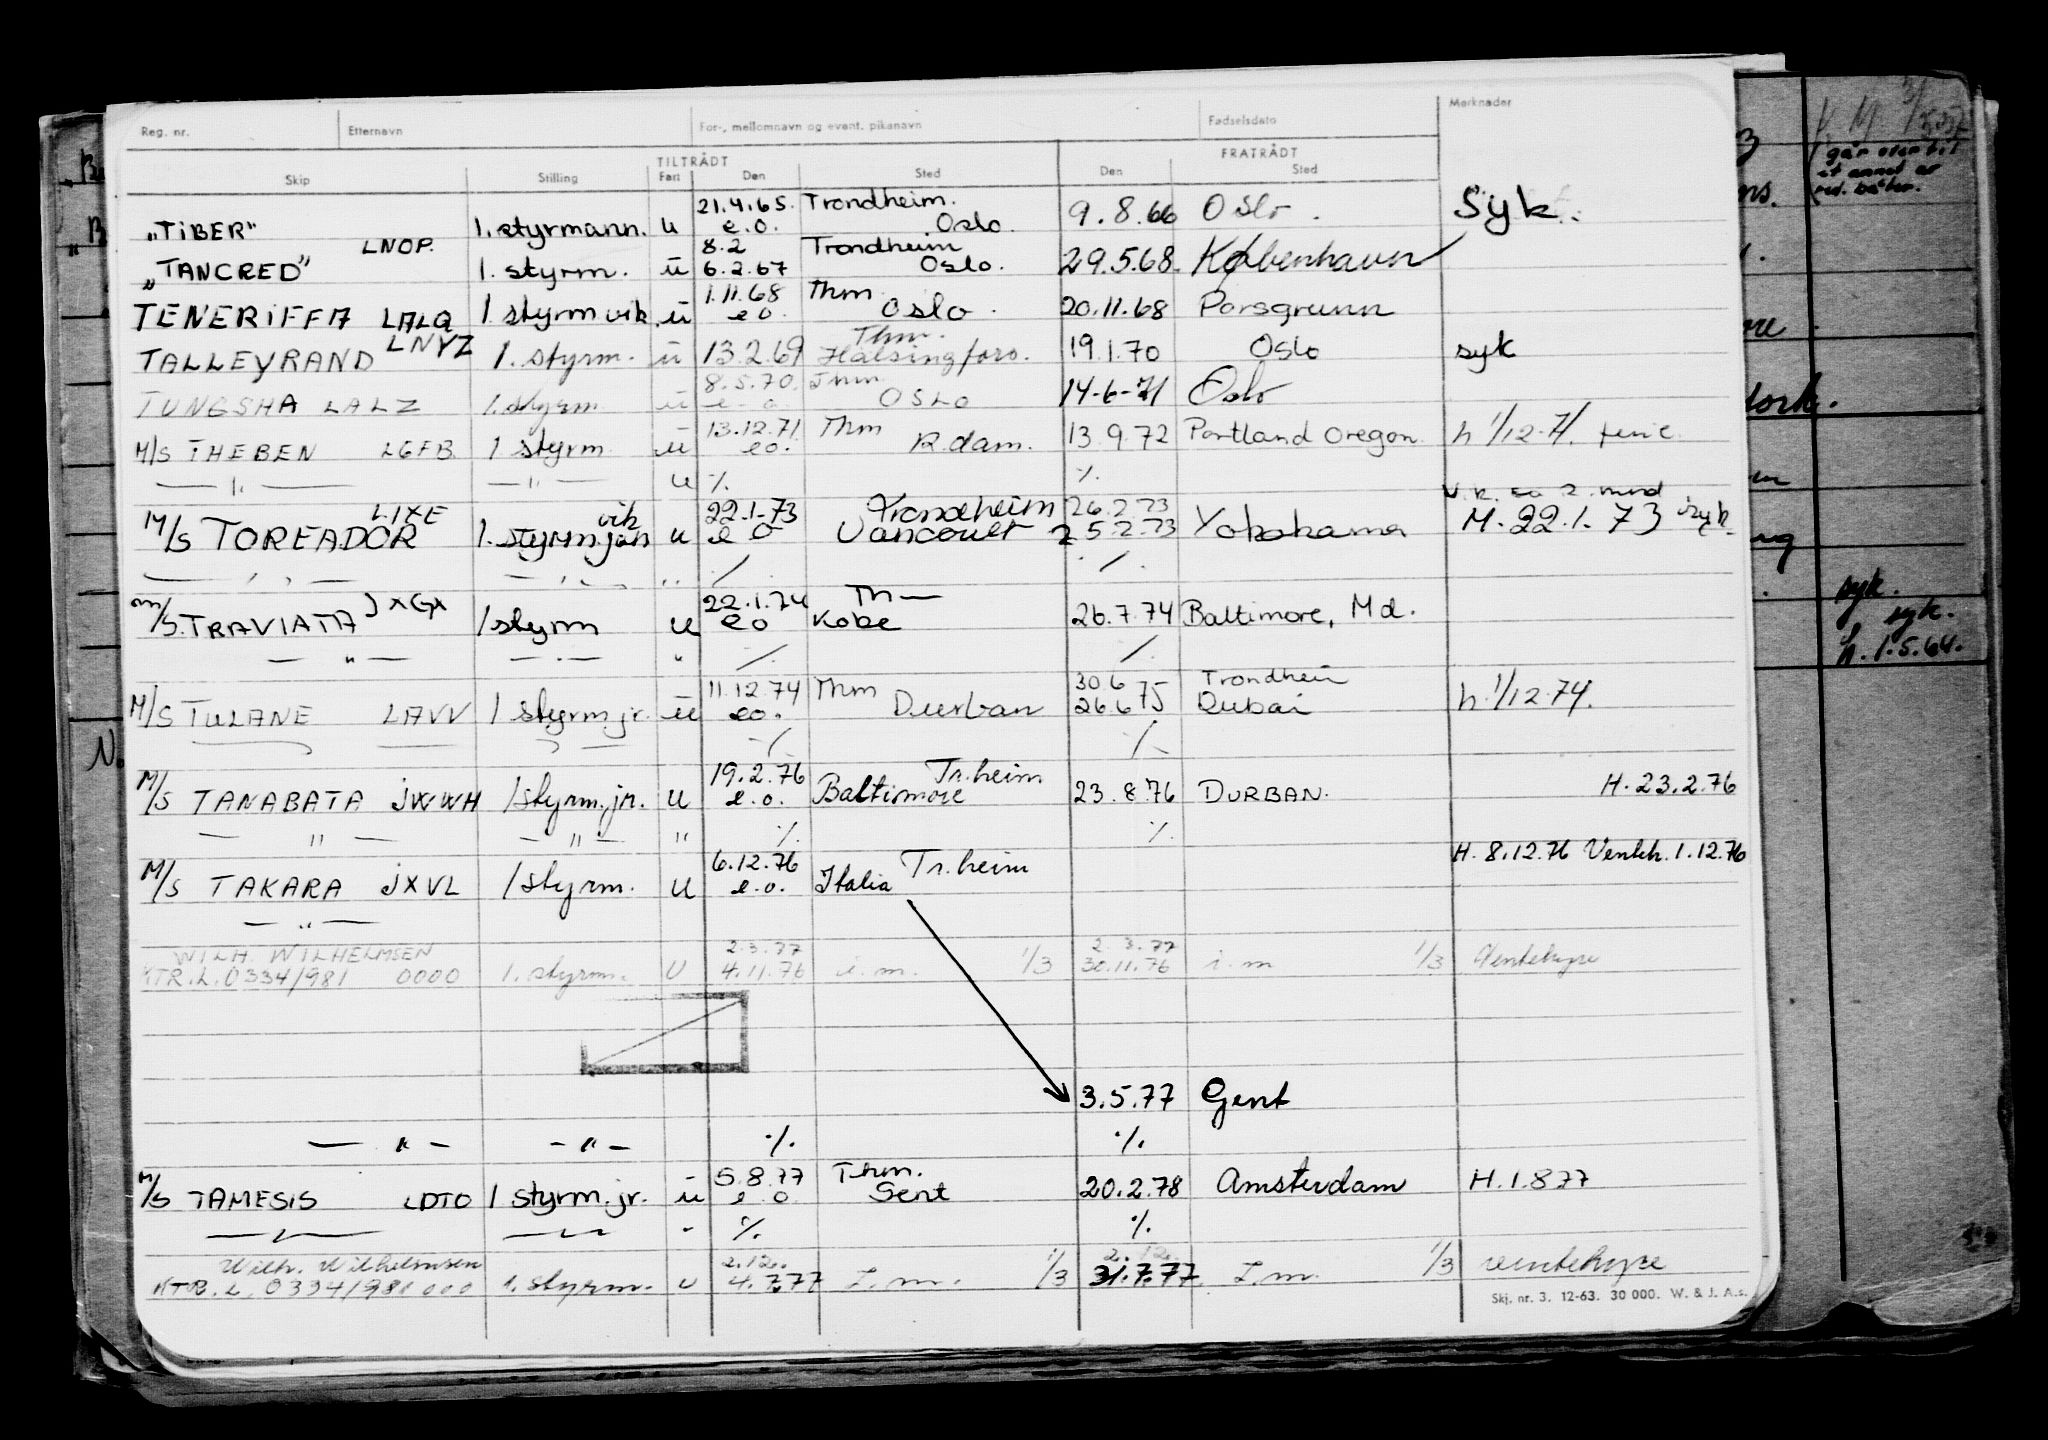 Reg. nr. Etternavn For-, mellomnavn og event. pikenavn Fødselsdato Merknader
TILTRÅDT FRATRÅDT
Skip Stilling Fart Den Sted Den Sted
21.4.65. Trondheim.
„TIBER" 1. styrmann. u e.o. Oslo. 9.8.66 Oslo. Syk.
LNOP. 8.2 Trondheim
„TANCRED" 1. styrm. ü 6.2.67 Oslo. 29.5.68. København
1.11.68 Thm
TENERIFFA LALQ 1. styrm vik. ü eo. Oslo. 20.11.68 Porsgrunn
LNYZ Thm.
TALLEYRAND 1. styrm. ü 13.2.69 Hälsingfors. 19.1.70 Oslo syk
8.5.70. Thm
TUNGSHA LALZ 1. styrm ü e-o OSLO 14-6-71 Oslo
13.12.71. Thm
M/S THEBEN LGFB 1 styrm ü eo. R.dam. 13.9.72 Portland Oregon. h 1/12-71. ferie.
— " — — " — u ٪ ٪
LIXE vik 22.1-73 Trondheim 26.2.73
M/S TOREADOR 1. styrm u e o 25.2.73 Yokohama M. 22.1.73 syk.
— " — — " — " ٪ ٪
JXGX 22.1.74 Th—
M/S. TRAVIATA 1 styrm u eo Kobe 26.7.74 Baltimore, Md.
— " — — " — " ٪ ٪
11.12.74 Thm 30.6 Trondheim
M/S TULANE LAVV 1 styrm jr. ü eo. Durban 26.6 75 Dubai h. 1/12-74.
٪ ٪
19.2.76 Tr.heim
M/S TANABATA JWWH 1 styrm. jr. u e.o. Baltimore 23.8.76 DURBAN. H. 23.2.76
— " — — " — " ٪ ٪
6.12.76 Tr.heim H. 8.12.76 Venteh. 1.12.76
M/S TAKARA JXVL 1 styrm. u e.o. Italia
— " —
WILH. WILHELMSEN 2.3.77 2.3.77
KTR.L. 0334/981 0000 1. styrm. U 4.11.76 i.m. 1/3 30.11.76 i.m 1/3 Ventehyre
3.5.77 Gent
— " — — " — ٪ ٪
5.8.77 Thm.
M/S TAMESIS LDTO 1 styrm. jr. ü e o Gent 20.2.78 Amsterdam H. 1.8 77
— " — — " — - ٪ ٪
Wilh. Wilhelmsen 2.12. 2.12.
KTR. L. 0334/981 000 1. styrm. u 4.7.77 I.m. 1/3 31.7.77 I.m. 1/3 ventehyre
Skj. nr. 3. 12-63. 30 000. W. & J. A.s.
syk.
syk.
h. 1.5.64.